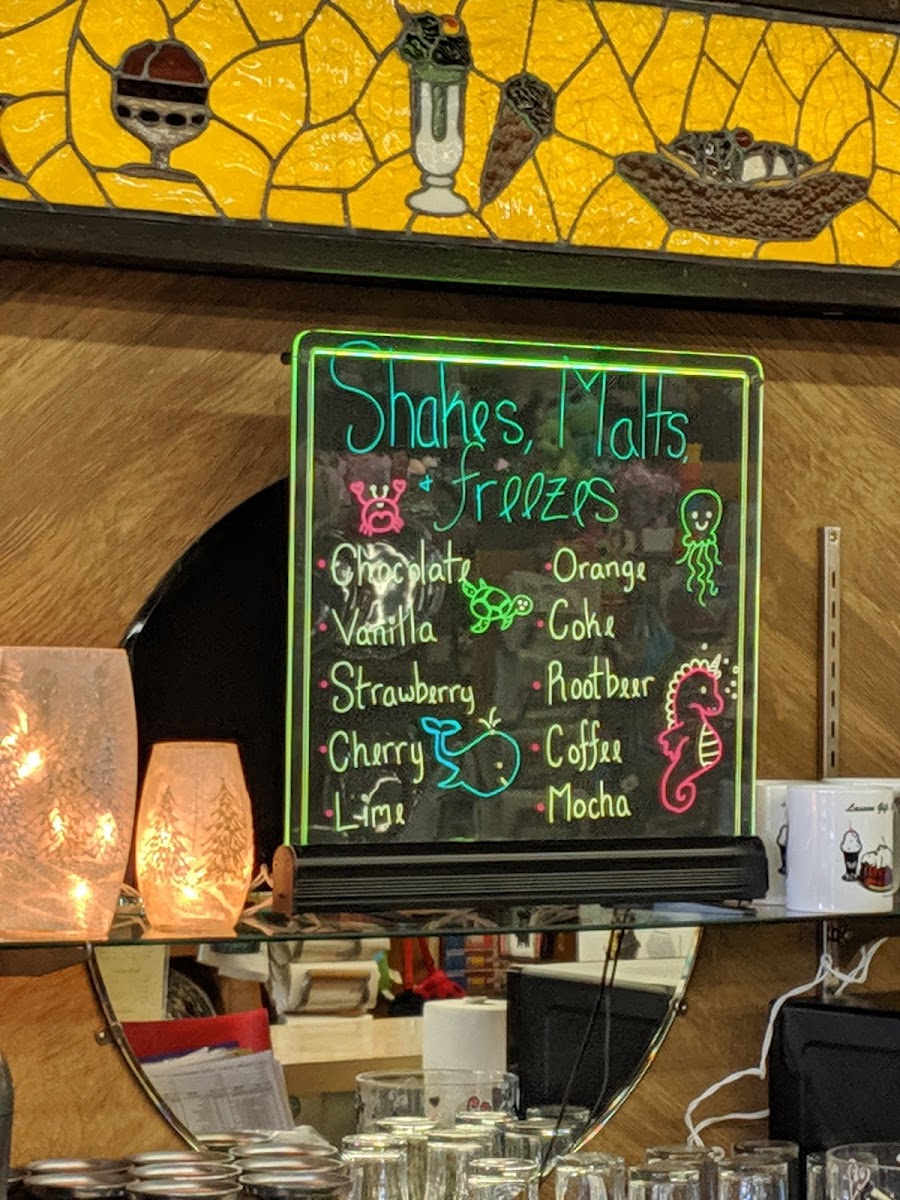 Shakes, Malts,
+ freezes
• Chocolate
• Vanilla
• Strawberry
• Cherry
• Lime
• Orange
• Coke
• Rootbeer
• Coffee
• Mocha